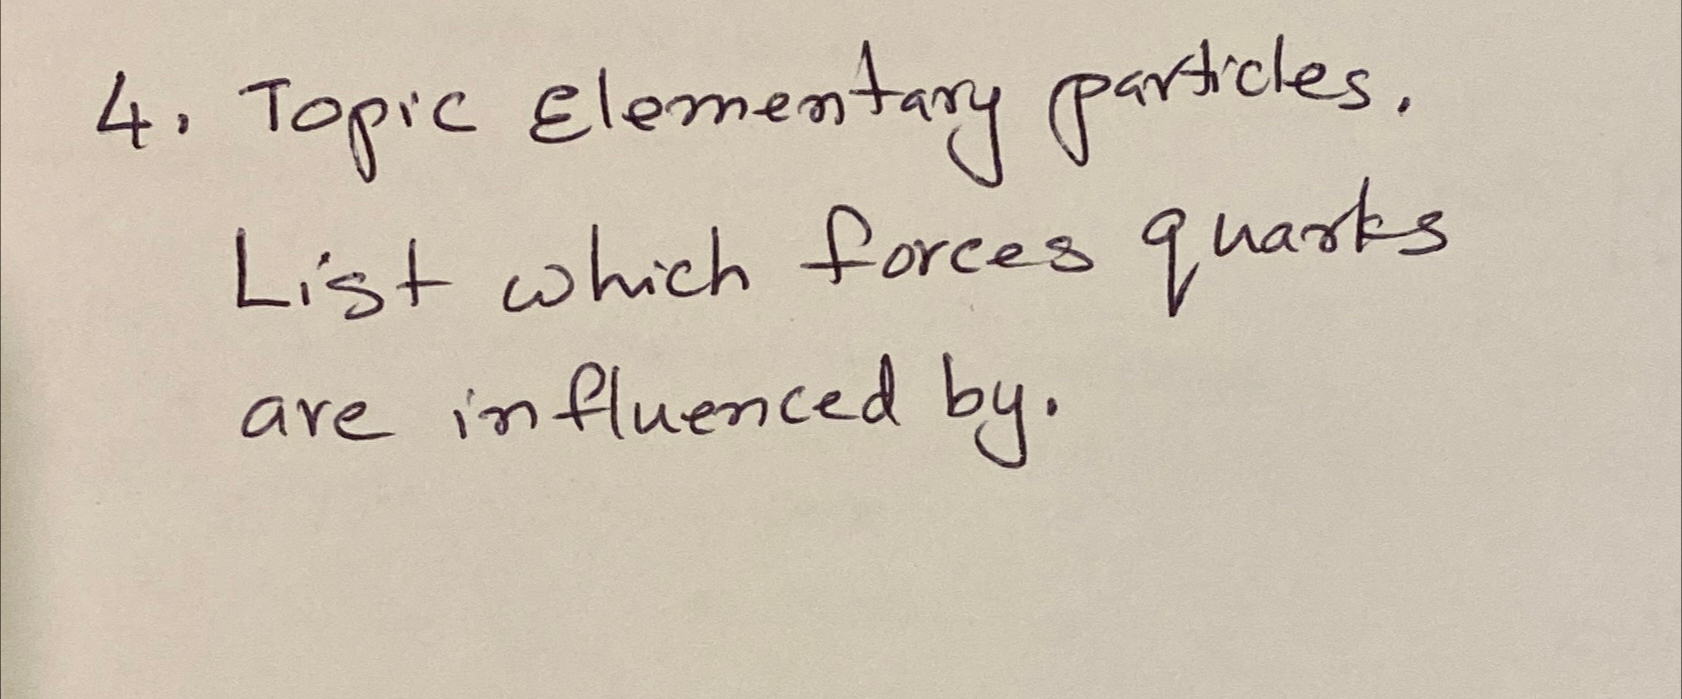 4. Topic Elementary particles.
List which forces quarks
are influenced by.